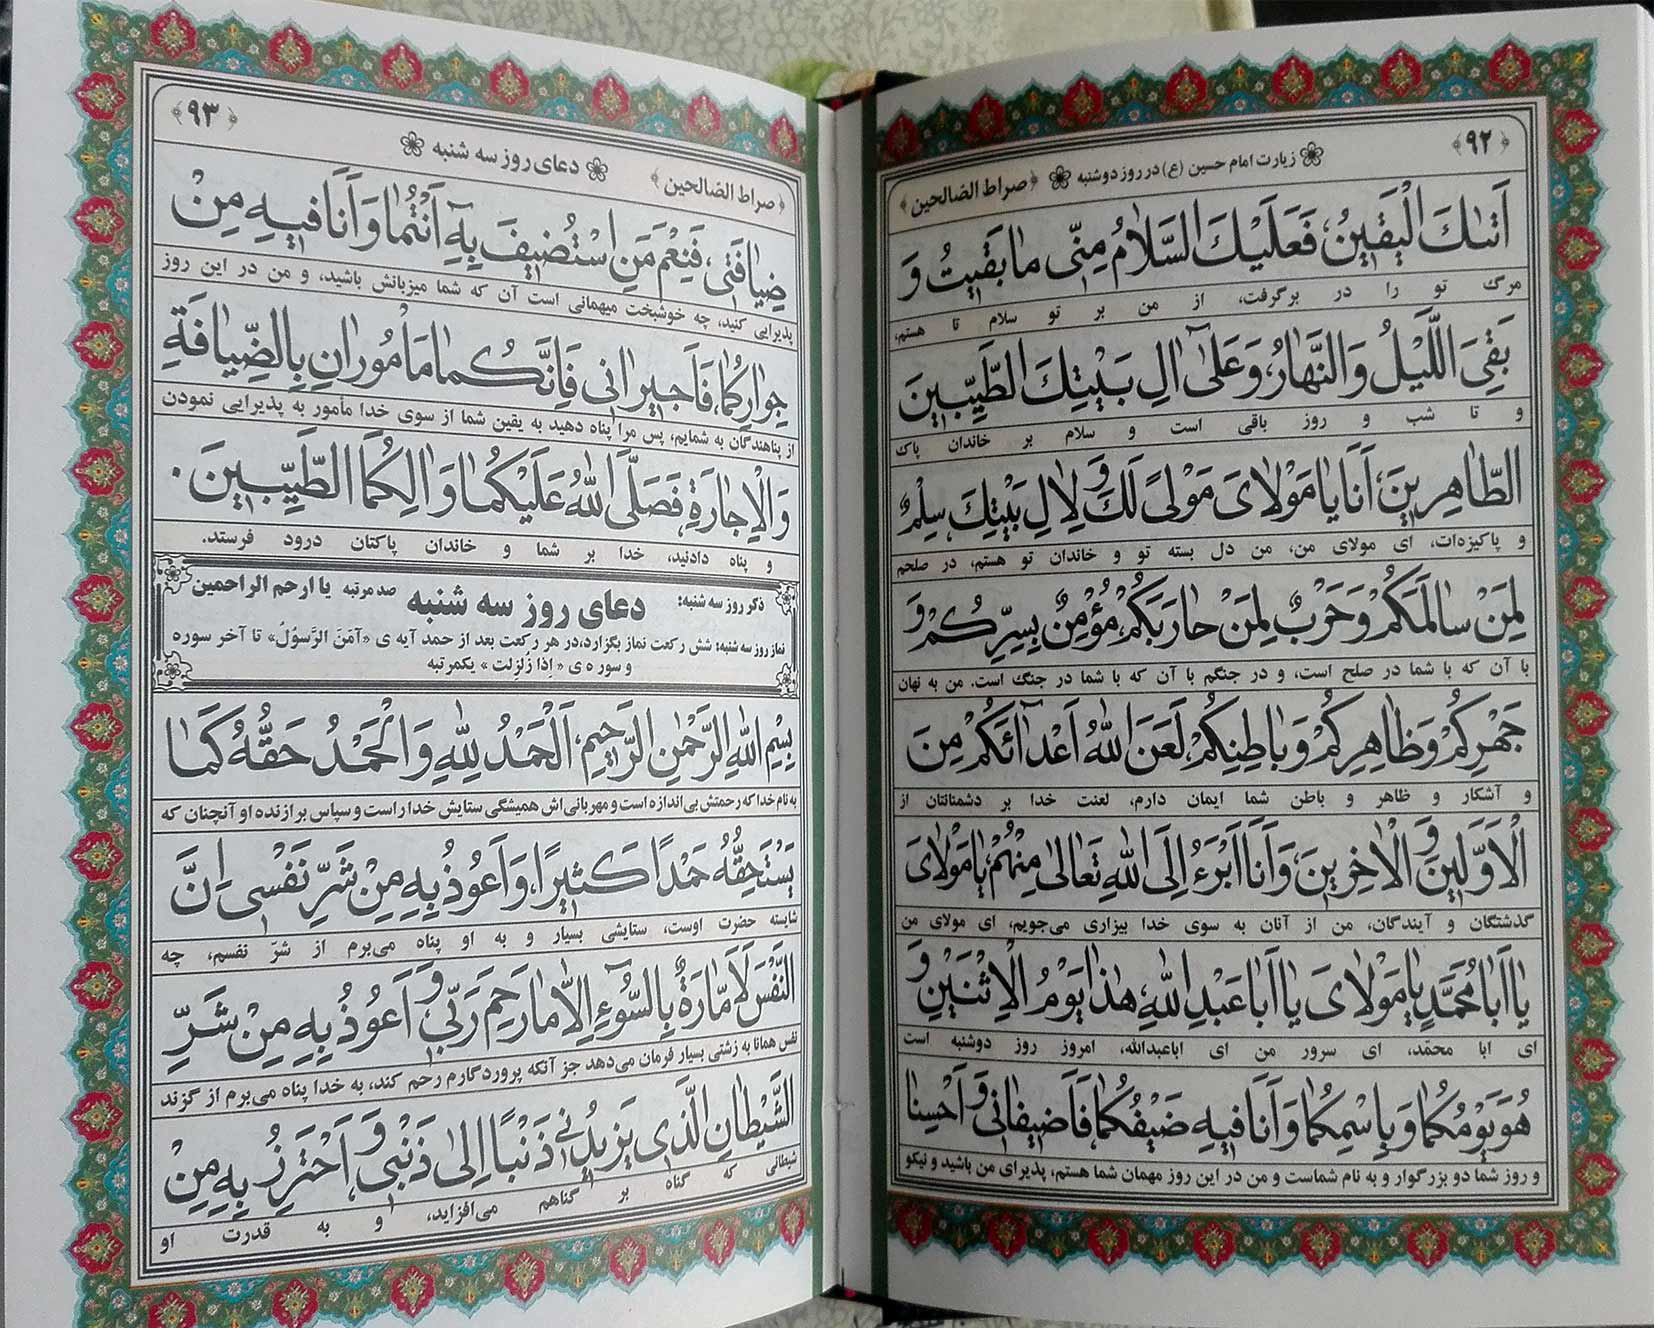 ﴿۹۲﴾
زیارت امام حسین (ع) در روز دوشنبه
﴿صراط الصّالحین﴾
اَتٰیكَ الْیَقینُ، فَعَلَیْكَ السَّلامُ مِنّی ما بَقیتُ وَ
مرگ تو را در برگرفت، از من بر تو سلام تا هستم،
بَقِیَ اللَّیْلُ وَ النَّهارُ، وَ عَلیٰ آلِ بَیْتِكَ الطَّیِّبینَ
و تا شب و روز باقی است و سلام بر خاندان پاک
الطّاهِرینَ، اَنَا یا مَوْلایَ مَوْلیً لَكَ وَ لِآلِ بَیْتِكَ، سِلْمٌ
و پاکیزه‌ات، ای مولای من، من دل بسته تو و خاندان تو هستم، در صلحم
لِمَنْ سالَمَكُمْ وَ حَرْبٌ لِمَنْ حارَبَكُمْ، مُؤْمِنٌ بِسِرِّكُمْ وَ
با آن که با شما در صلح است، و در جنگم با آن که با شما در جنگ است. من به نهان
جَهْرِكُمْ وَ ظاهِرِكُمْ وَ باطِنِكُمْ، لَعَنَ اللّٰهُ اَعْدآئَكُمْ مِنَ
و آشکار و ظاهر و باطن شما ایمان دارم، لعنت خدا بر دشمنانتان از
الْاَوَّلینَ وَ الْاٰخِرینَ، وَ اَنَا اَبْرَءُ اِلَی اللّٰهِ تَعالیٰ مِنْهُمْ، یا مَوْلایَ
گذشتگان و آیندگان، من از آنان به سوی خدا بیزاری می‌جویم، ای مولای من
یا اَبا مُحَمَّدٍ یا مَوْلایَ یا اَبا عَبْدِ اللّٰهِ، هٰذا یَوْمُ الْاِثْنَیْنِ وَ
ای ابا محمّد، ای سرور من ای اباعبدالله، امروز روز دوشنبه است
هُوَ یَوْمُكُما وَ بِاسْمِكُما وَ اَنَا فیهِ ضَیْفُكُما، فَاَضیفانی وَ اَحْسِنا
و روز شما دو بزرگوار و به نام شماست و من در این روز مهمان شما هستم، پذیرای من باشید و نیکو
﴿صراط الصّالحین﴾
دعای روز سه شنبه
﴿۹۳﴾
ضِیافَتی، فَنِعْمَ مَنِ اسْتُضیفَ بِهِ اَنْتُما وَ اَنَا فیهِ مِنْ
پذیرایی کنید، چه خوشبخت میهمانی است آن که شما میزبانش باشید، و من در این روز
جِوارِكُما، فَاَجیرانی فَاِنَّكُما مَاْمُورانِ بِالضِّیافَةِ
از پناهندگان به شمایم، پس مرا پناه دهید به یقین شما از سوی خدا مأمور به پذیرایی نمودن
وَ الْاِجارَةِ، فَصَلَّی اللّٰهُ عَلَیْكُما وَ آلِكُمَا الطَّیِّبینَ.
و پناه دادنید، خدا بر شما و خاندان پاکتان درود فرستد.
ذکر روز سه شنبه: دعای روز سه شنبه صد مرتبه یا ارحم الراحمین
نماز روز سه شنبه: شش رکعت نماز بگزارد، در هر رکعت بعد از حمد آیه ی «آمَنَ الرَّسوُلُ» تا آخر سوره
و سوره ی «اِذا زُلزِلت» یکمرتبه
بِسْمِ اللّٰهِ الرَّحْمٰنِ الرَّحیمِ، اَلْحَمْدُ لِلّٰهِ وَ الْحَمْدُ حَقُّهُ كَمٰا
به نام خدا که رحمتش بی اندازه است و مهربانی اش همیشگی ستایش خدا راست و سپاس برازنده او آنچنان که
یَسْتَحِقُّهُ حَمْدًا كَثیرًا، وَ اَعُوذُ بِهِ مِنْ شَرِّ نَفْسی اِنَّ
شایسته حضرت اوست، ستایشی بسیار و به او پناه می‌برم از شرّ نفسم، چه
النَّفْسَ لَاَمّارَةٌ بِالسُّوٓءِ اِلّا ما رَحِمَ رَبّی، وَ اَعُوذُ بِهِ مِنْ شَرِّ
نفس همانا به زشتی بسیار فرمان می‌دهد جز آنکه پروردگارم رحم کند، به خدا پناه می‌برم از گزند
الشَّیْطانِ الَّذی یَزیدُنی ذَنْبًا اِلیٰ ذَنْبی، وَ اَحْتَرِزُ بِهِ مِنْ
شیطانی که گناه بر گناهم می‌افزاید، و به قدرت او